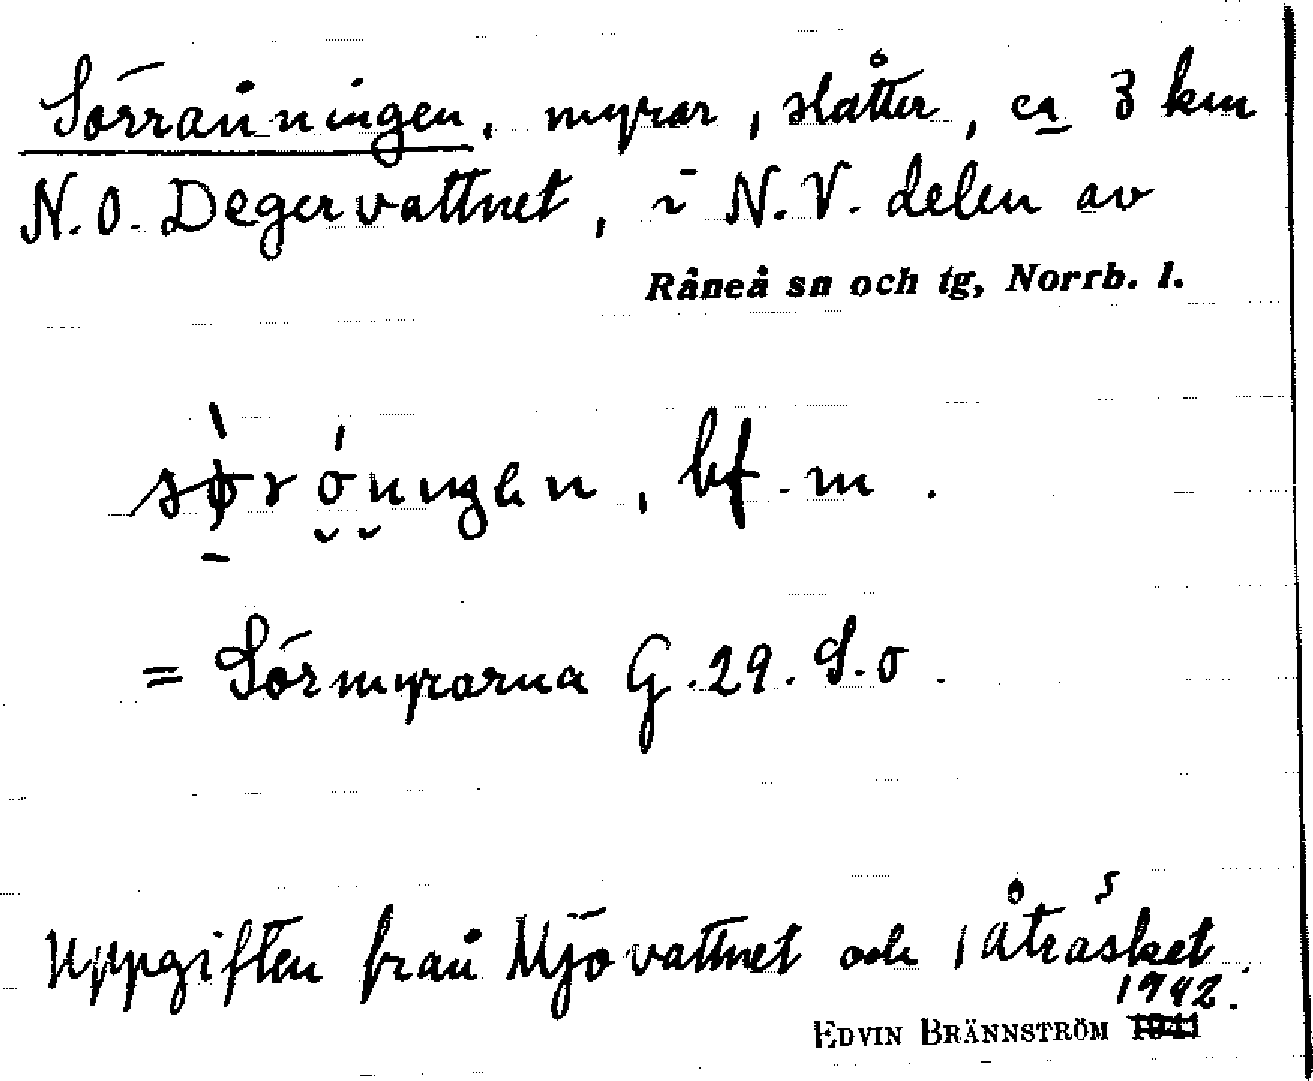 Sörråningen, myrar, slåtter, ca 3 km
N.O. Degervattnet, i N.V. delen av
Råneå sn och tg, Norrb. l.
bf. m.
= Sörmyrarna G.29. S.o.
Uppgiften från Mjövattnet och Jåträsket
1942.
EDVIN BRÄNNSTRÖM 1941